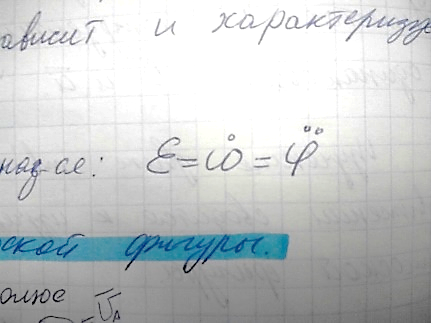 ависит и характеризуе
наз-ся: ε = ω̇ = φ̈
ской фигуры.
олюс
U_A